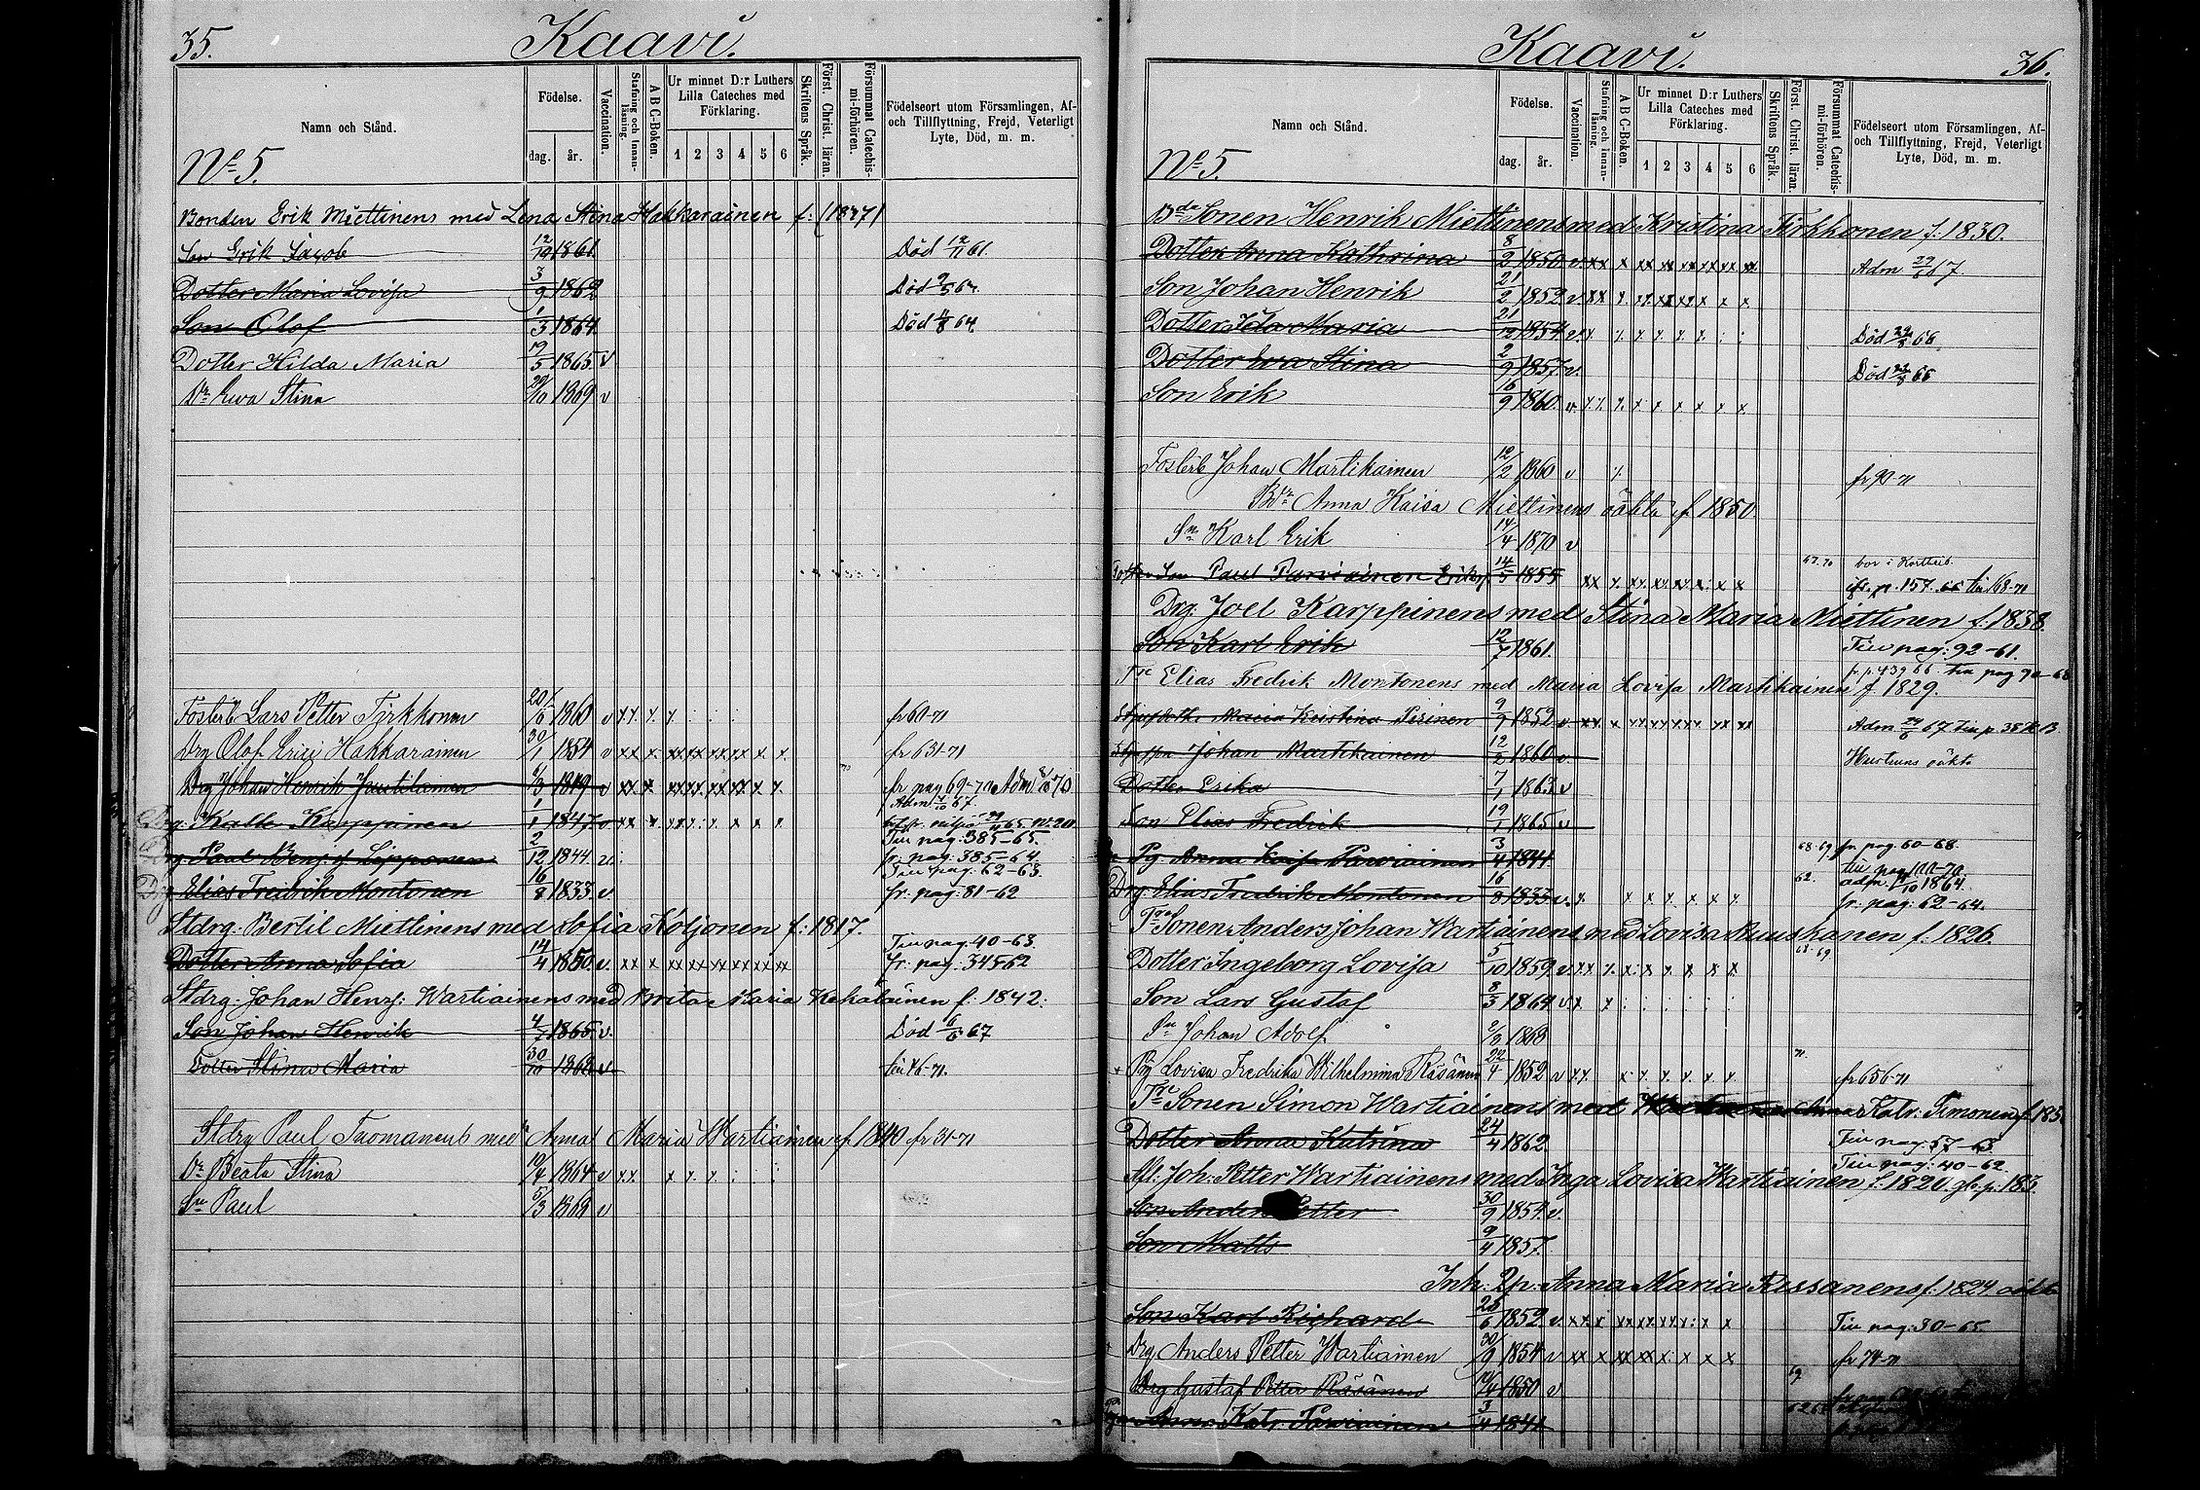 35.
Kaavi.
Namn och Stånd.
Födelse.
dag.
år.
Vaccination.
Stafning och Innan-
läsning.
A B C-Boken.
Ur minnet D:r Luthers
Lilla Cateches med
Förklaring.
1 2 3 4 5 6
Skriftens Språk.
Först. Christ. läran.
Försummat Catechis-
mi-förhören.
Födelseort utom Församlingen, Af-
och Tillflyttning, Frejd, Veterligt
Lyte, Död, m. m.
No 5.
Bonden Erik Miettinens med Lena Stina Hakkarainen f: (1837)
Son Erik Jacob 12/10 1861. Död 12/11 61.
Dotter Maria Lovisa 3/9 1862 Död 64.
Son Olof 1/3 1864 Död 64.
Dotter Hilda Maria 19/5 1865 v
Dr Ewa Stina 29/10 1869 v
Fosterb Lars Petter Tirkkonen 20/6 1860 v x x x x fr 60-71
Drg Olof Hakkarainen 30/1 1854 v x x x xx xx xx xx x x. fr 631-71
Drg Johan Henrik 1849 v xx x xx xx xx xx x x. fr pag 69-70 Adm 70
Adm 67.
Drg: Kalle Karppinen 1/1 1847. v xx x. x x x x x x
Tin pag: 385-65.
Drg Paul Benj: Lipponen 2/12 1844 v. fr: pag: 385-64.
Tin pag: 62-63.
Drg Elias Fredrik Montonen 16/8 1833. v. fr: pag: 81-62
Stdrg: Bertil Miettinens med Sofia Koljonen f: 1817.
Tin pag: 40-63.
Dotter Anna Sofia 14/4 1850. v. xx x xx xx xx xx xx xx fr: pag: 345 62
Stdrg: Johan Henr: Wartiainens med Brita Maria f: 1842.
Son Johan Henrik 4/7 1865 v. Död 6/6 67
Dotter Stina Maria 30/10 1868 v tin 86-71.
Stdrg Paul med Anna Maria Wartiainen f 1840 fr 31-71
Dr Berta Stina 10/4 1864 v x x x x x
Sn Paul 5/3 1869 v
Kaavi.
36.
Namn och Stånd.
Födelse.
dag.
år.
Vaccination.
Stafning och Innan-
läsning.
A B C-Boken.
Ur minnet D:r Luthers
Lilla Cateches med
Förklaring.
1 2 3 4 5 6
Skriftens Språk.
Först. Christ. läran.
Försummat Catechis-
mi-förhören.
Födelseort utom Församlingen, Af-
och Tillflyttning, Frejd, Veterligt
Lyte, Död, m. m.
No 5.
Bde Sonen Henrik Miettinens med Kristina Tirkkonen f: 1830.
Dotter Anna Kathrina 8/2 1850 v. xx x xx xx xx xx xx xx Adm 67.
Son Johan Henrik 21/2 1852 v. xx x. xx xx xx x x x
Dotter Ida Maria 21/12 1854 v. x x x x x x Död 66
Dotter Ewa Stina 2/9 1857 v. Död 66
Son Erik 16/9 1860. v. x x. x. x x x x x x
Fosterb Johan Martikainen 12/2 1860 v x fr 90-71
Anna Kaisa Miettinens oäkta f 1850.
Sn Karl Erik 14/4 1870 v
Son Paul Parviainen 14/5 1855 xx x. xx xx xx x x x 67. 70 bor i
p. 157. 66 tin 68-71
Drg: Joel Karppinens med Stina Maria Miettinen f: 1838.
Son Karl Erik 12/7 1861. Tin pag: 92-61.
fr p. 439 66 tin pag 90-68
Elias Fredrik Montonens med Maria Lovisa Martikainen f 1829.
Maria Kristina Piirinen 9/9 1852 v xx x xx xx xx xx xx Adm 67 tin p 38
Johan Martikainen 12/2 1860 v Hustruns oäkta
Dotter Erika 7/1 1863 v
Son Elias Fredrik 19/1 1865 v
Pg. Anna Kaisa Parviainen 3/4 1841 68-69 fr pag 60-68.
tin pag 111-70
Drg: Elias Fredrik Montonen 16/8 1833 v. x. x x x x x x 62. adm. /10 1864.
fr: pag: 62-64.
Sonen Anders Johan Wartiainens med Lovisa Ruuskanen f: 1826.
Dotter Ingeborg Lovisa 5/10 1859 v. xx x. x x x x x x 68-69
Son Lars Gustaf 8/3 1864 v x x
Sn Johan Adolf 1868
Pg Lovisa Fredrika Wilhelmina Räsänen 22/4 1852 v x x x x. x. x. x x 71. fr 656-71
Sonen Simon Wartiainens med Anna Katr: Timonen f 183
Dotter Anna Katrina 24/4 1862. Tin pag: 57-63
Tin pag: 40-62.
Afl: Joh: Petter Wartiainens med Inga Lovisa Wartiainen f: 1820. gb. p: 183.
Son Anders Petter 30/9 1854. v.
Son Matts 9/4 1857.
Inh: Qp: Anna Maria Kissanens f: 1824 oäkta
Son Karl Richard 23/6 1852 v. xx. x xx xx xx x x Tin pag: 30-65.
Drg Anders Petter Wartiainen 30/9 1854 v xx x xx xx x x x x fr 74-71
Drg Gustaf Petter Räsänen 1850 v 69.
Anna Katr. Parviainen 3/4 1841